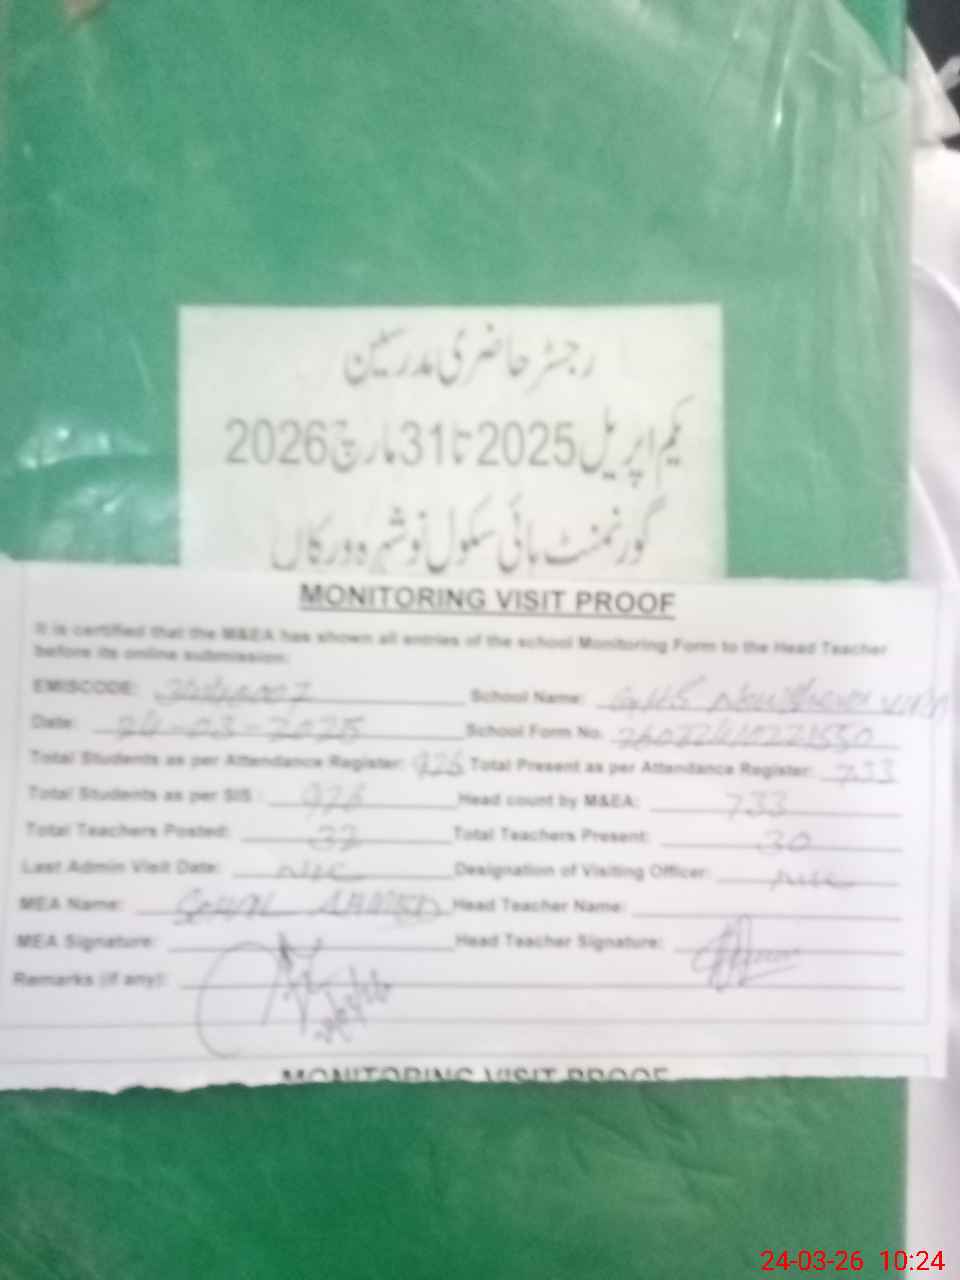 رجسٹر حاضری مدرسین
یکم اپریل 2025 تا 31 مارچ 2026
گورنمنٹ ہائی سکول نوشہرہ ورکاں
MONITORING VISIT PROOF
It is certified that the M&EA has shown all entries of the school Monitoring Form to the Head Teacher
before its online submission:
EMISCODE: School Name: GHS
Date: 24-03-2025 School Form No.
Total Students as per Attendance Register: 926 Total Present as per Attendance Register: 733
Total Students as per SIS : 926 Head count by M&EA: 733
Total Teachers Posted: 32 Total Teachers Present: 30
Last Admin Visit Date: Designation of Visiting Officer:
MEA Name: Head Teacher Name:
MEA Signature: Head Teacher Signature:
Remarks (if any):
MONITORING VISIT PROOF
24-03-26 10:24